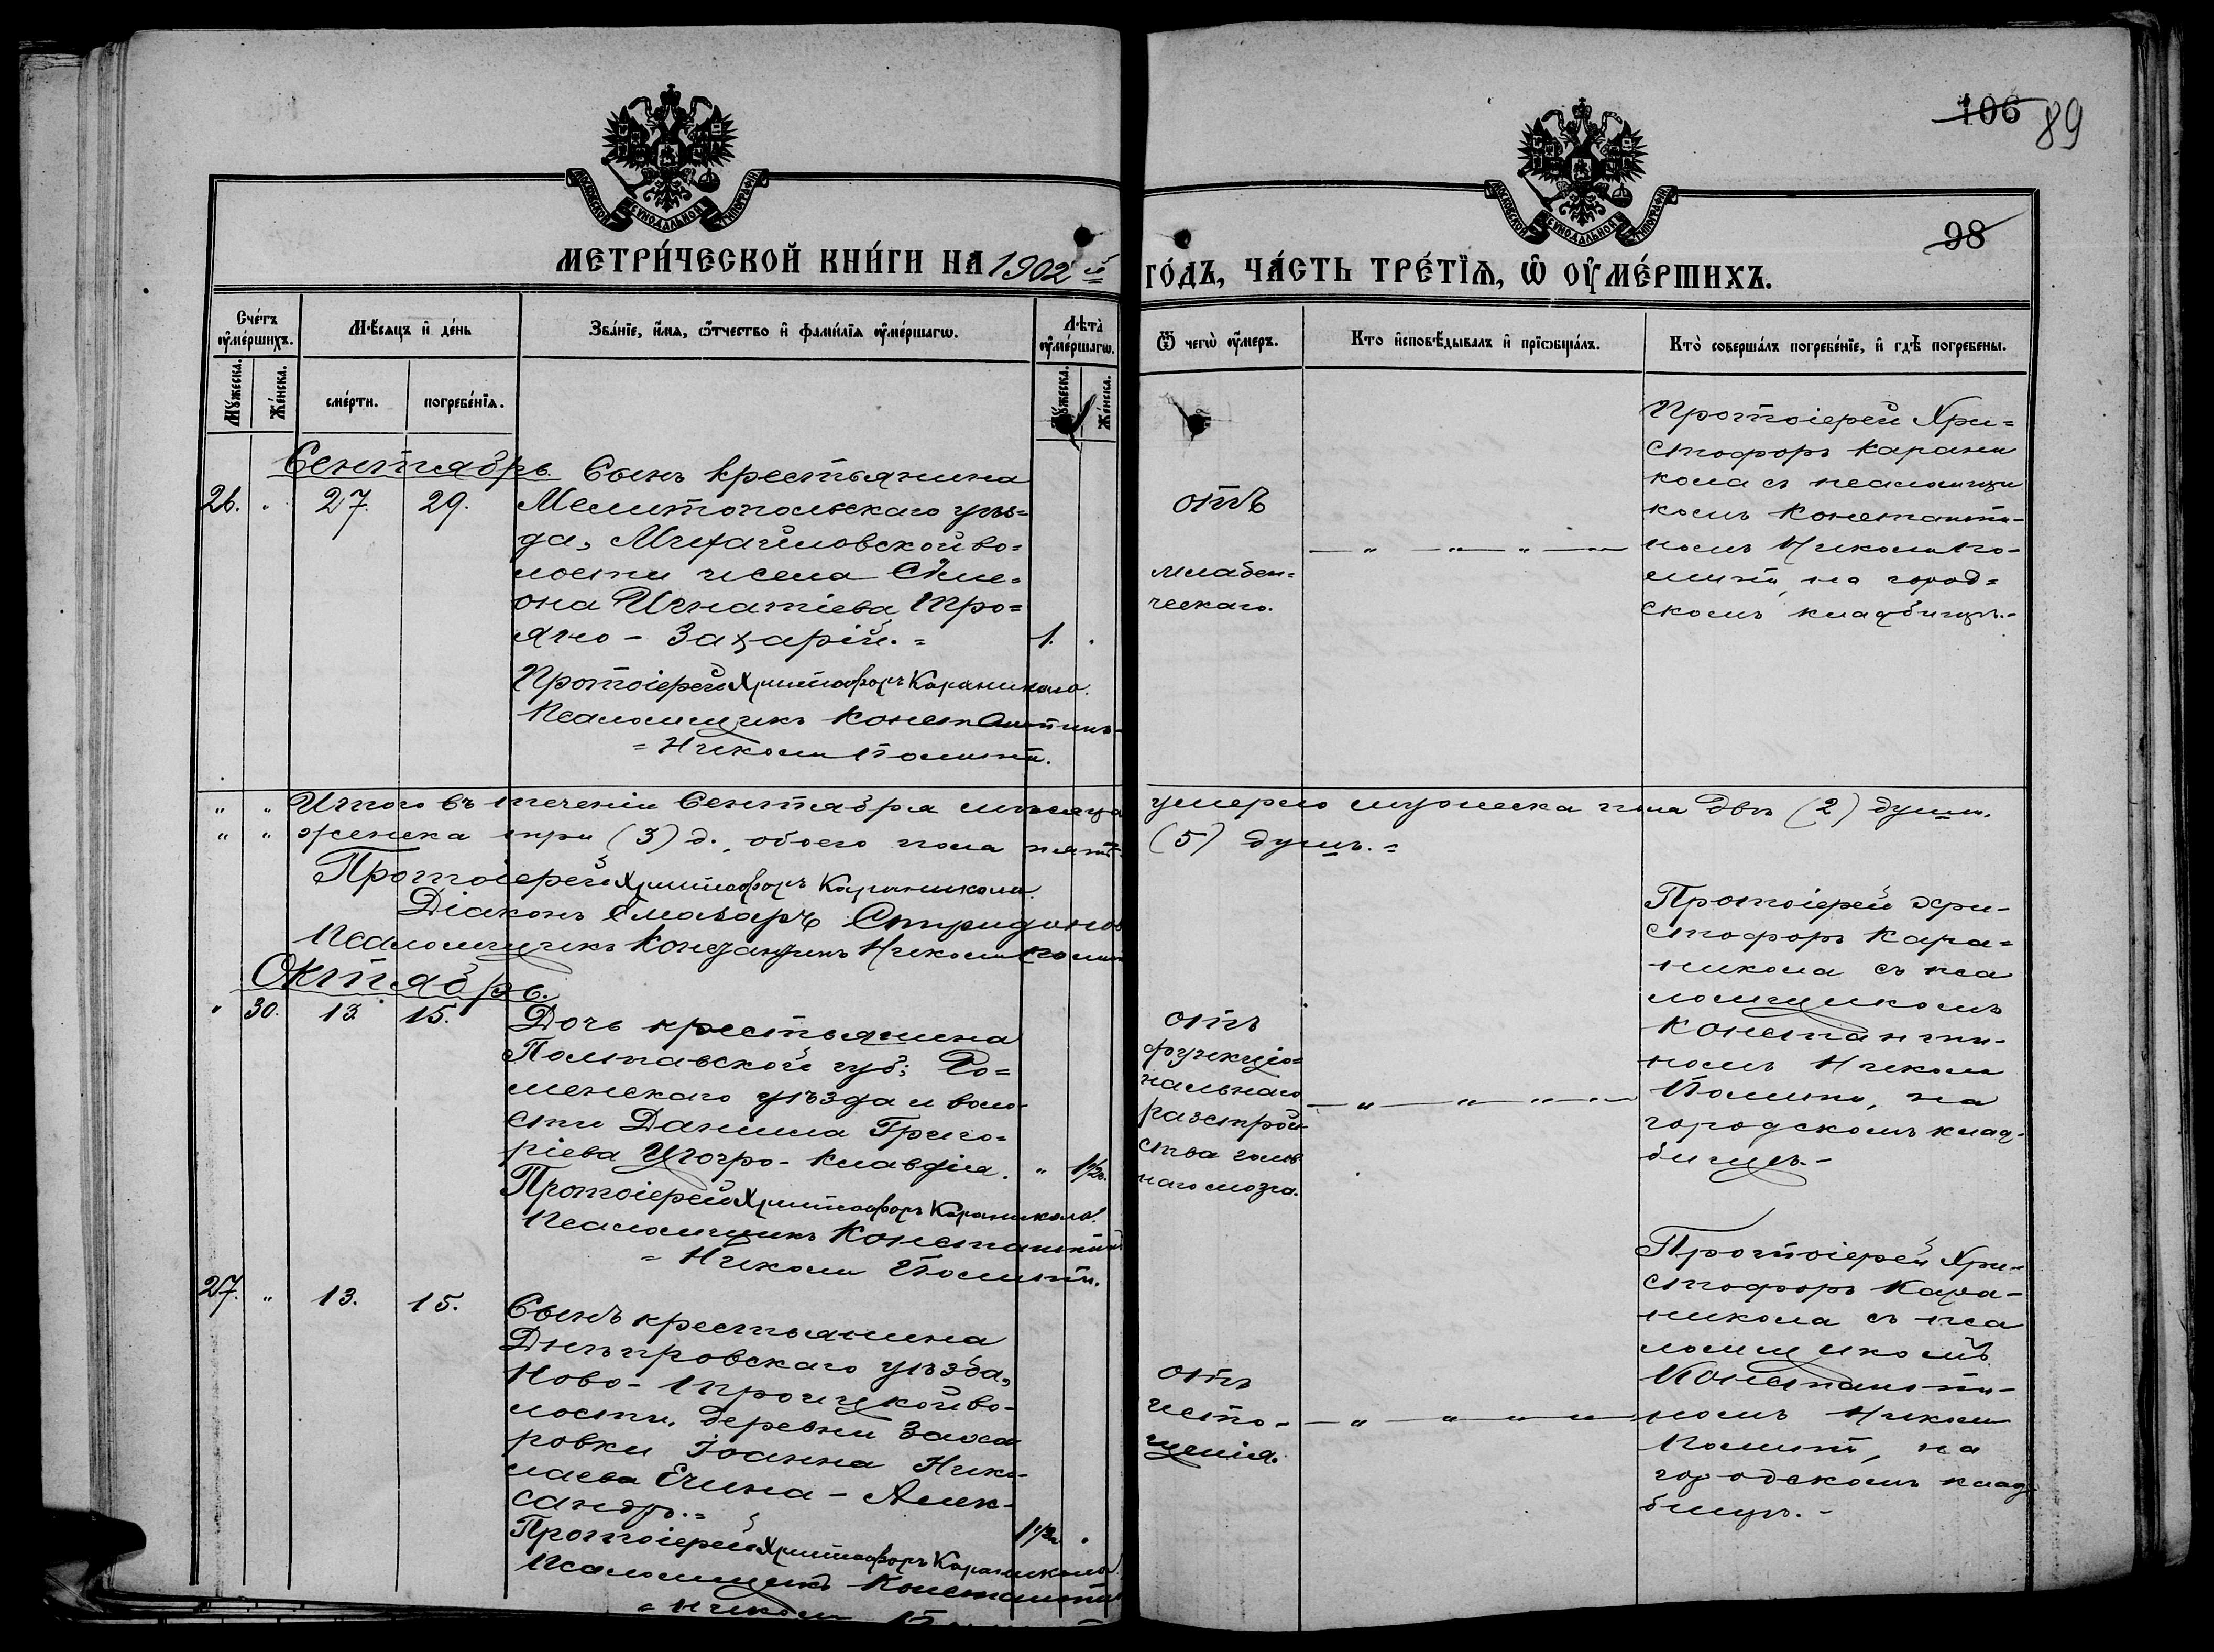 106 89
98
МОСКОВСКОЙ СУНОДАЛЬНОЙ ТИПОГРАФІИ
МОСКОВСКОЙ СУНОДАЛЬНОЙ ТИПОГРАФІИ
МЕТРИ́ЧЕСКОЙ КНИ́ГИ НА 1902 й
ГО́ДЪ, ЧА́СТЬ ТРЕ́ТЇѦ, Ѡ ОУМЕ́РШИХЪ.
Сче́тъ оуме́ршихъ.
Мꙋжеска.
Же́нска.
Мѣсяцъ и де́нь
сме́рти.
погребе́нїѧ.
Зва́нїе, и́мѧ, ѻ҆́тчество и фами́лїѧ оуме́ршагѡ.
Лѣта̀ оуме́ршагѡ.
Мꙋжеска.
Же́нска.
Ѿ чегѡ̀ оу́меръ.
Кто и҆сповѣ́дывалъ и прїѡбща́лъ.
Кто̀ соверша́лъ погребе́нїе, и гдѣ̀ погребены.
Сентябрь.
26. " 27. 29.
Сынъ крестьянина
Мелитопольскаго уѣз=
да, Михайловской во=
лости и села Симе=
она Игнатіева Тро=
яно - Захарій. = 1.
Протоіерей Христофоръ Караникола.
Псаломщикъ Константинъ
= Николи Полити.
отъ
младен=
ческаго.
Протоіерей Хри=
стофоръ Карани
кола съ псаломщи
комъ Константи-
номъ Николи По-
лити, на город=
скомъ кладбищѣ.-
" " Итого въ теченіи Сентября мѣсяца умерло мужеска пола двѣ (2) души.
" " женска три (3) д., обоего пола пять (5) душъ. =
Протоіерей Христофоръ Караникола
Діаконъ Спиридонов
Псаломщикъ Константинъ Николи Полити
Октябрь.
" 30. 13. 15.
Дочь крестьянина
Полтавской губ: Ро=
менскаго уѣзда и воло
сти Даніила Григо=
ріева - Клавдія. " 1½.
Протоіерей Христофоръ Караникола.
Псаломщикъ Константинъ
= Николи Полити.
отъ
функціо=
нальнаго
разстрой-
ства голов
наго мозга.
Протоіерей Хри-
стофоръ Кара=
никола съ пса
ломщикомъ
Константи-
номъ Николи
Полити, на
городскомъ клад-
бищѣ.-
27. " 13. 15.
Сынъ крестьянина
Днѣпровскаго уѣзда,
Ново-Троицкой во-
лости, деревни Заха
ровки Іоанна Нико-
лаева Ечина - Алек-
сандръ. = 1½
Протоіерей Христофоръ Караникола
Псаломщикъ Константинъ
= Николи
отъ
исто-
щенія.
Протоіерей Хри-
стофоръ Кара-
никола съ пса
ломщикомъ
Константи-
номъ Николи
Полити, на
городскомъ клад
бищѣ. -